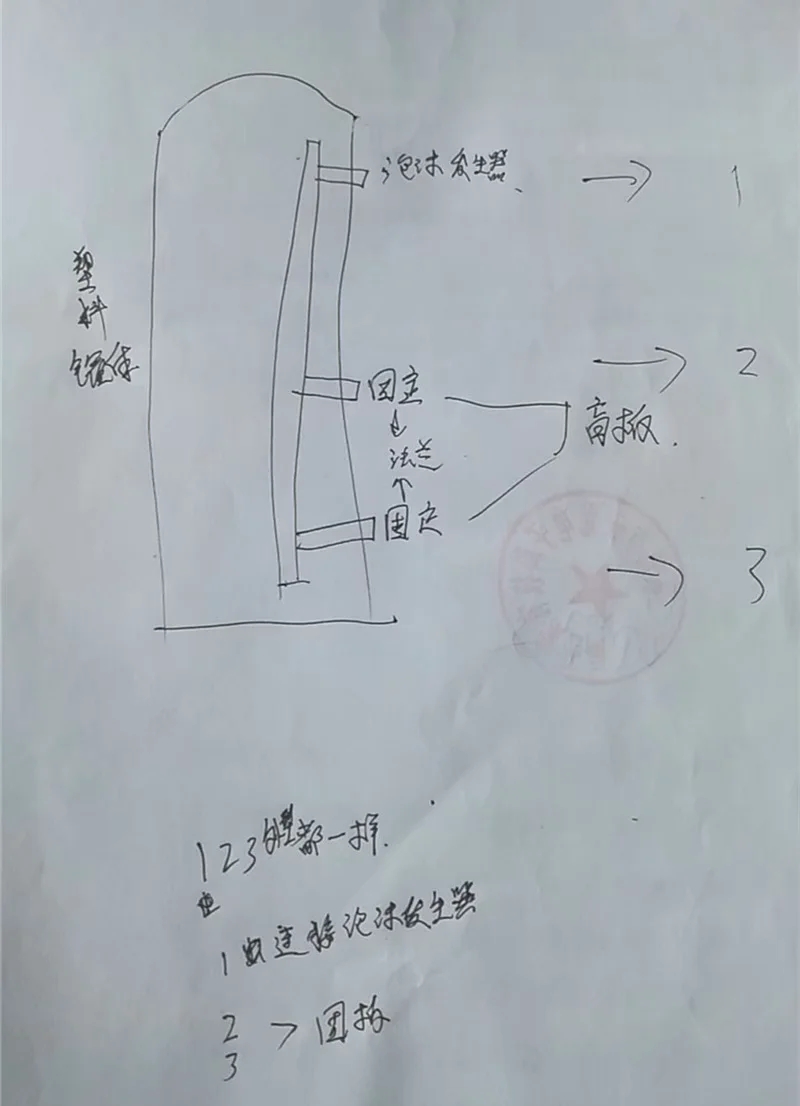 泡沫发生器、 → 1
塑料
罐体
→ 2
固定
法兰
盲板.
固定
→ 3
1 2 3 外型都一样.
1 处连接泡沫发生器
2
3